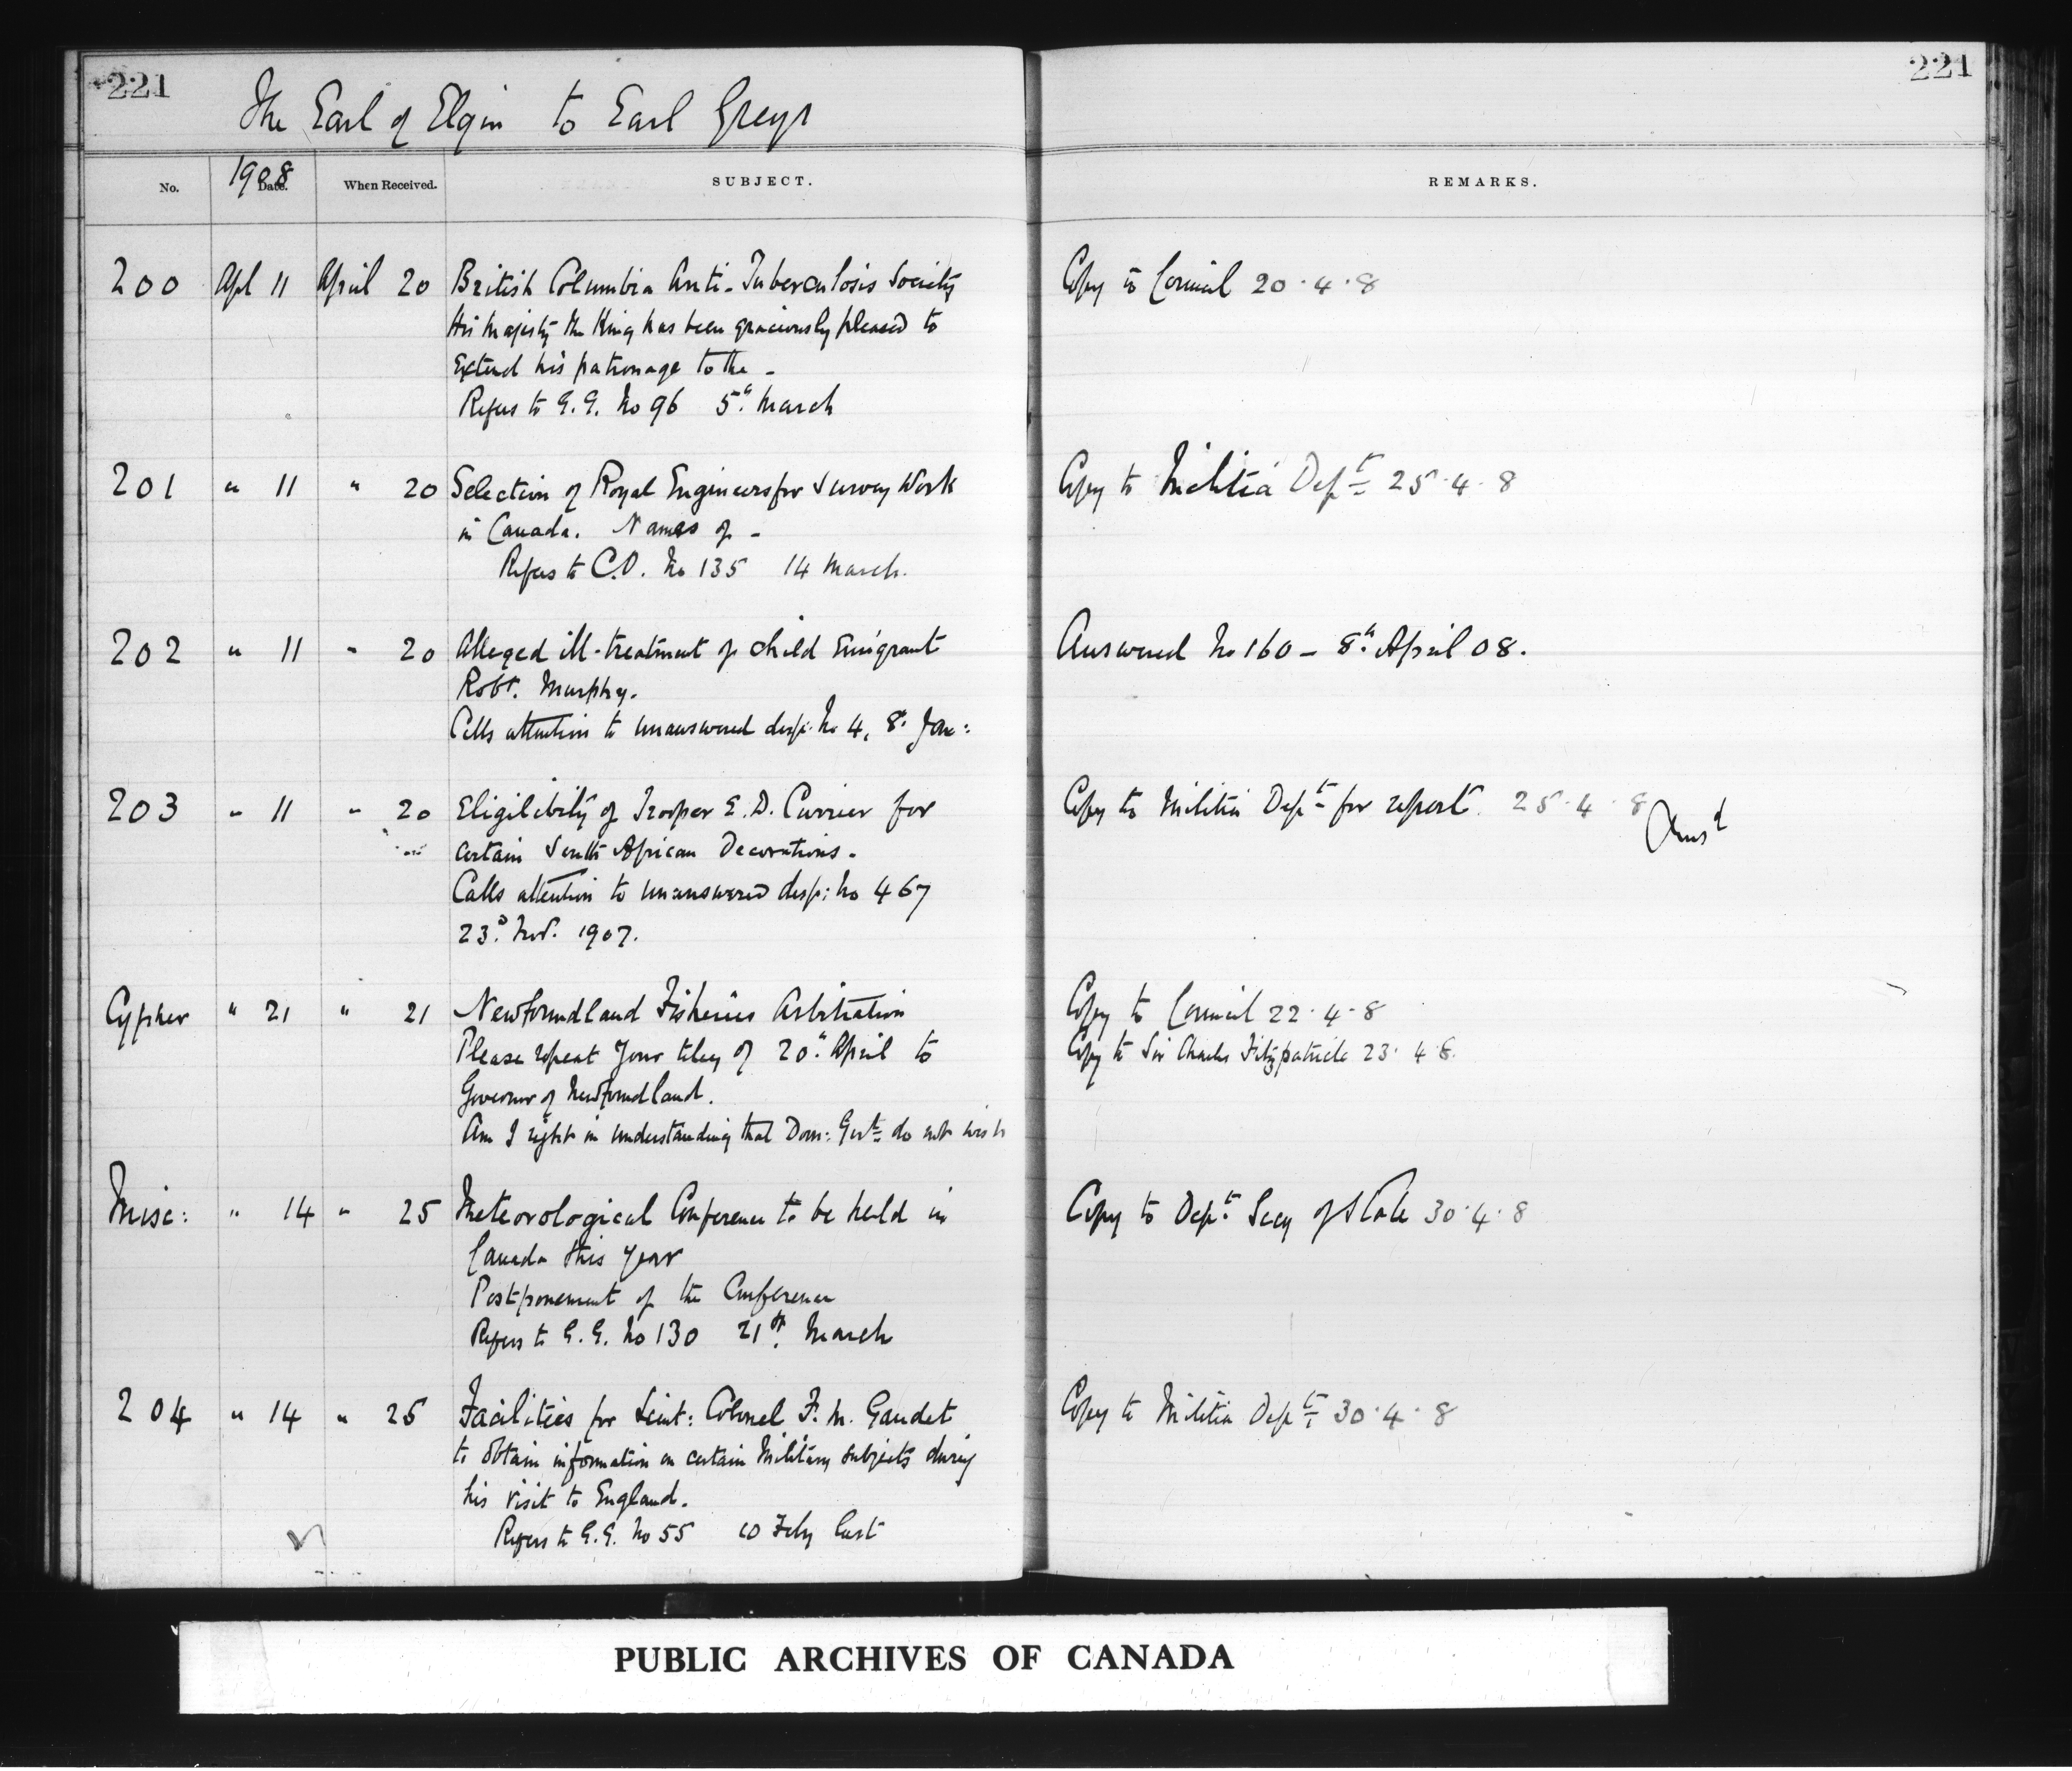 221
221
The Earl of Elgin to Earl Grey
1908
No. Date. When Received. SUBJECT. REMARKS.
200 Apl 11 April 20 British Columbia Anti-Tuberculosis Society Copy to Council 20.4.8
His Majesty the King has been graciously pleased to
Extend his patronage to the -
Refers to G.G. No 96 5th March
201 " 11 " 20 Selection of Royal Engineers for Survey Work Copy to Militia Dept 25.4.8
in Canada. Names of -
Refers to C.O. No 135 14 March.
202 " 11 " 20 Alleged ill-treatment of child Emigrant Answered No 160 - 8th April 08.
Robt. Murphy.
Calls attention to unanswered desp. No 4, 8th Jan:
203 " 11 " 20 Eligibility of Trooper E.D. Currier for Copy to Militia Dept for report. 25.4.8
Ansd
certain South African Decorations.
Calls attention to unanswered desp: No 467
23d Nov. 1907.
Cypher " 21 " 21 Newfoundland Fisheries Arbitration Copy to Council 22.4.8
Please repeat your teleg of 20th April to Copy to Sir Charles Fitzpatrick 23.4.8.
Governor of Newfoundland.
Am I right in understanding that Dom: Govt do not wish
Misc: " 14 " 25 Meteorological Conference to be held in Copy to Dept. Secy of State 30.4.8
Canada this year
Postponement of the Conference
Refers to G.G. No 130 21st March
204 " 14 " 25 Facilities for Lieut: Colonel F.M. Gaudet Copy to Militia Dept 30.4.8
to obtain information on certain Military subjects during
his visit to England.
Refers to G.G. No 55 10 Feby last
PUBLIC ARCHIVES OF CANADA